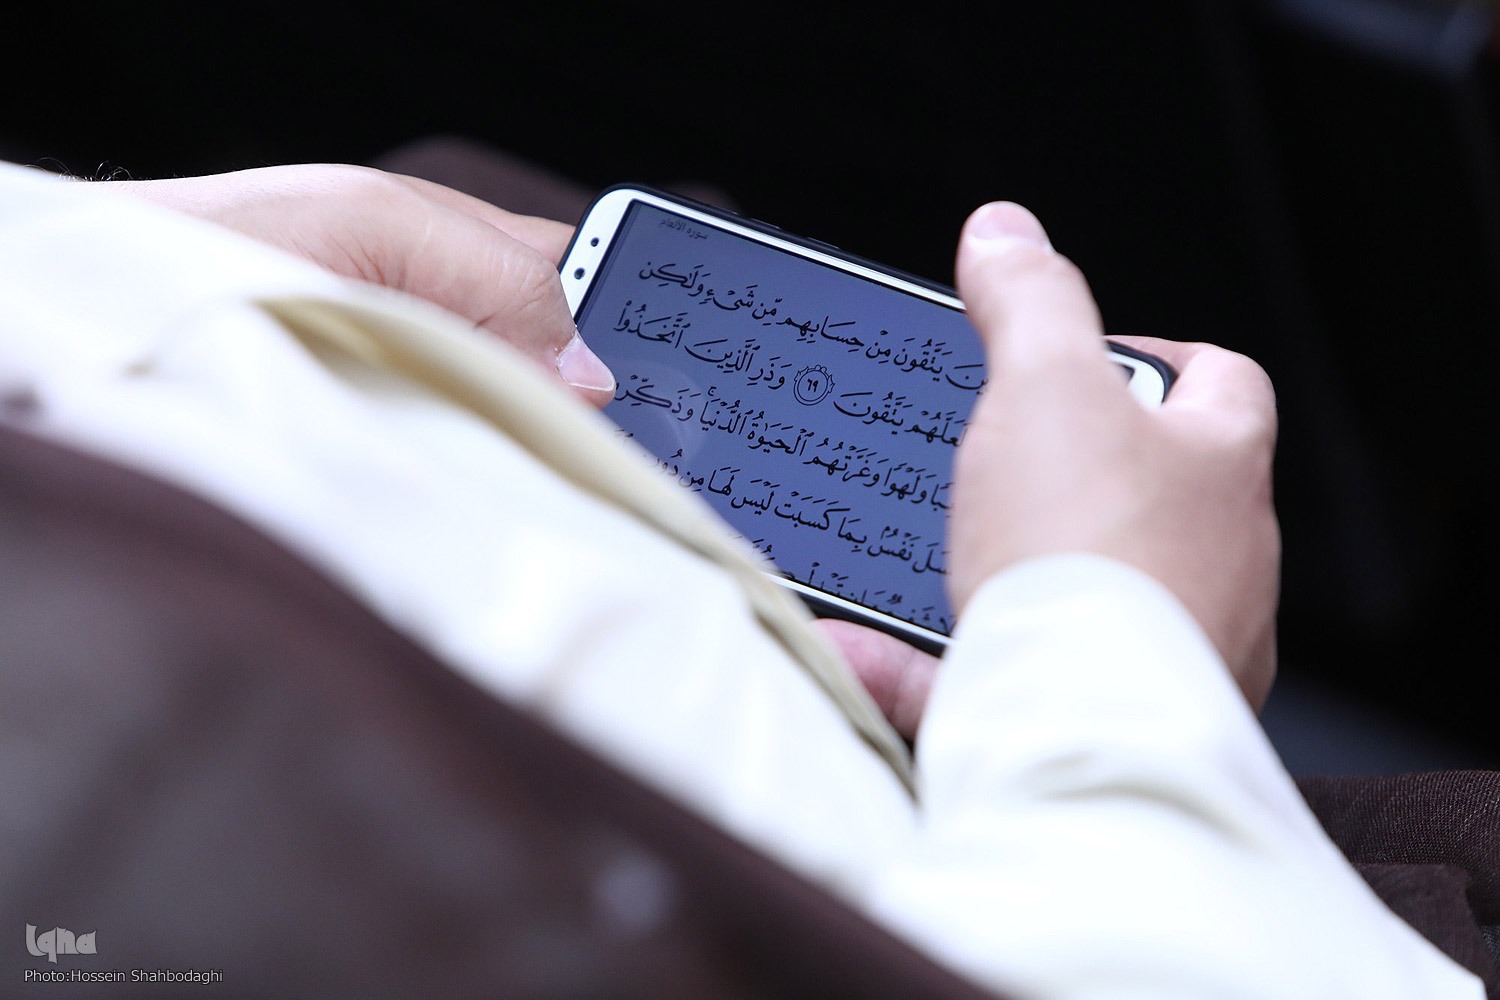 سورة الأنعام
يَتَّقُونَ مِنْ حِسَابِهِم مِّن شَىْءٍ وَلَـٰكِن
يَتَّقُونَ ٦٩ وَذَرِ ٱلَّذِينَ ٱتَّخَذُوا۟
وَلَهْوًا وَغَرَّتْهُمُ ٱلْحَيَوٰةُ ٱلدُّنْيَا ۚ وَذَكِّرْ
نَفْسٌۢ بِمَا كَسَبَتْ لَيْسَ لَهَا مِن
Iqna
Photo:Hossein Shahbodaghi